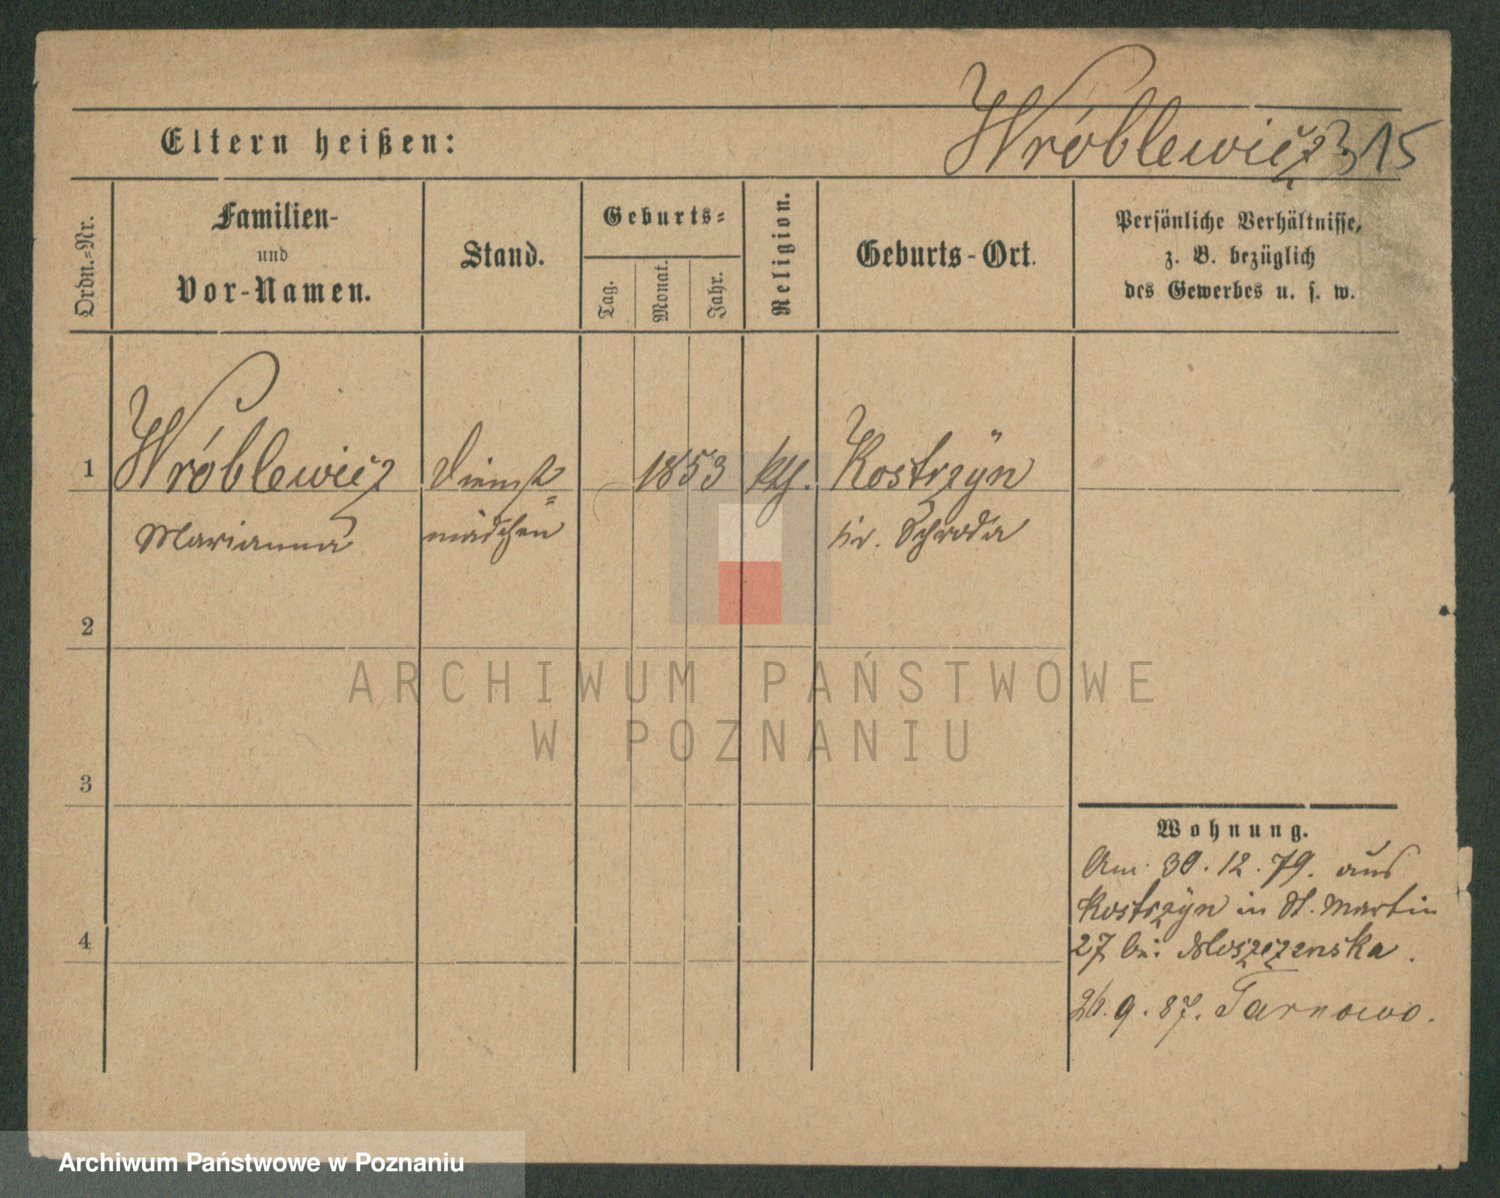 Wróblewicz 315
Eltern heißen:
Ordn.-Nr.
Familien-
und
Vor-Namen.
Stand.
Geburts-
Tag.
Monat.
Jahr.
Religion.
Geburts-Ort.
Persönliche Verhältnisse,
z. B. bezüglich
des Gewerbes u. s. w.
1 Wróblewicz Dienst= 1853 kth. Kostrzyn
Marianna mädchen Kr. Schroda
2
3
4
Wohnung.
Am 30.12.79. aus
Kostrzyn in St. Martin
27 bei Moszczenska.
26.9.87. Tarnowo.
ARCHIWUM PAŃSTWOWE
W POZNANIU
Archiwum Państwowe w Poznaniu